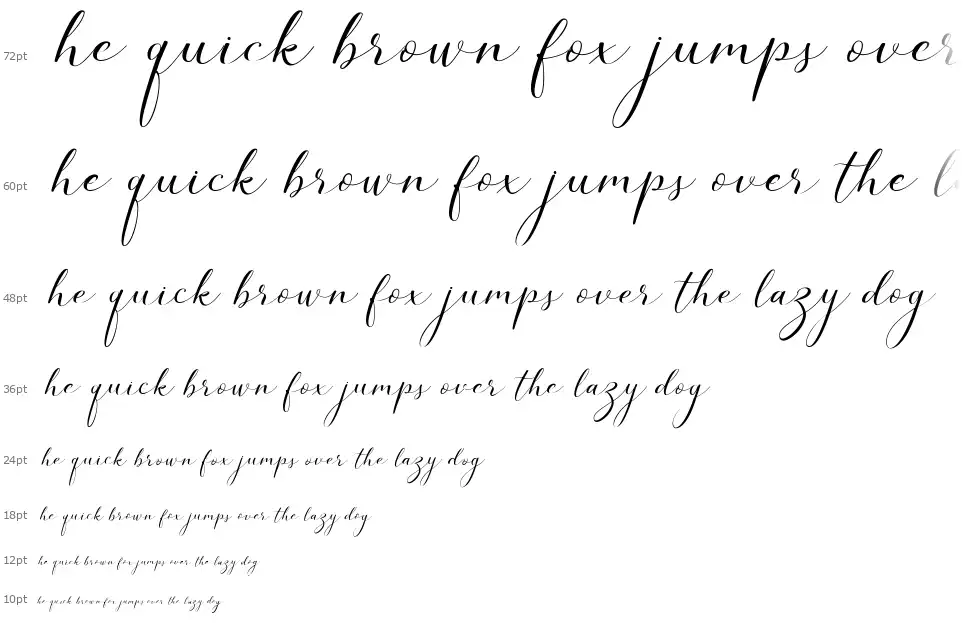 72pt he quick brown fox jumps over
60pt he quick brown fox jumps over the
48pt he quick brown fox jumps over the lazy dog
36pt he quick brown fox jumps over the lazy dog
24pt he quick brown fox jumps over the lazy dog
18pt he quick brown fox jumps over the lazy dog
12pt he quick brown fox jumps over the lazy dog
10pt he quick brown fox jumps over the lazy dog